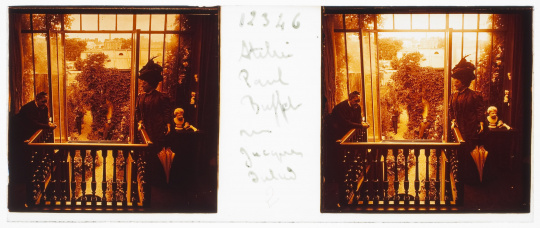 12346
Atelier
Paul
Buffet
rue
Jacques
Dulud